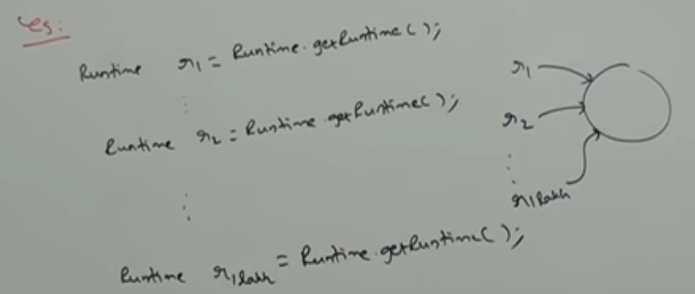 eg:
Runtime r1 = Runtime.getRuntime();
Runtime r2 = Runtime.getRuntime();
Runtime r1lakh = Runtime.getRuntime();
r1
r2
r1lakh